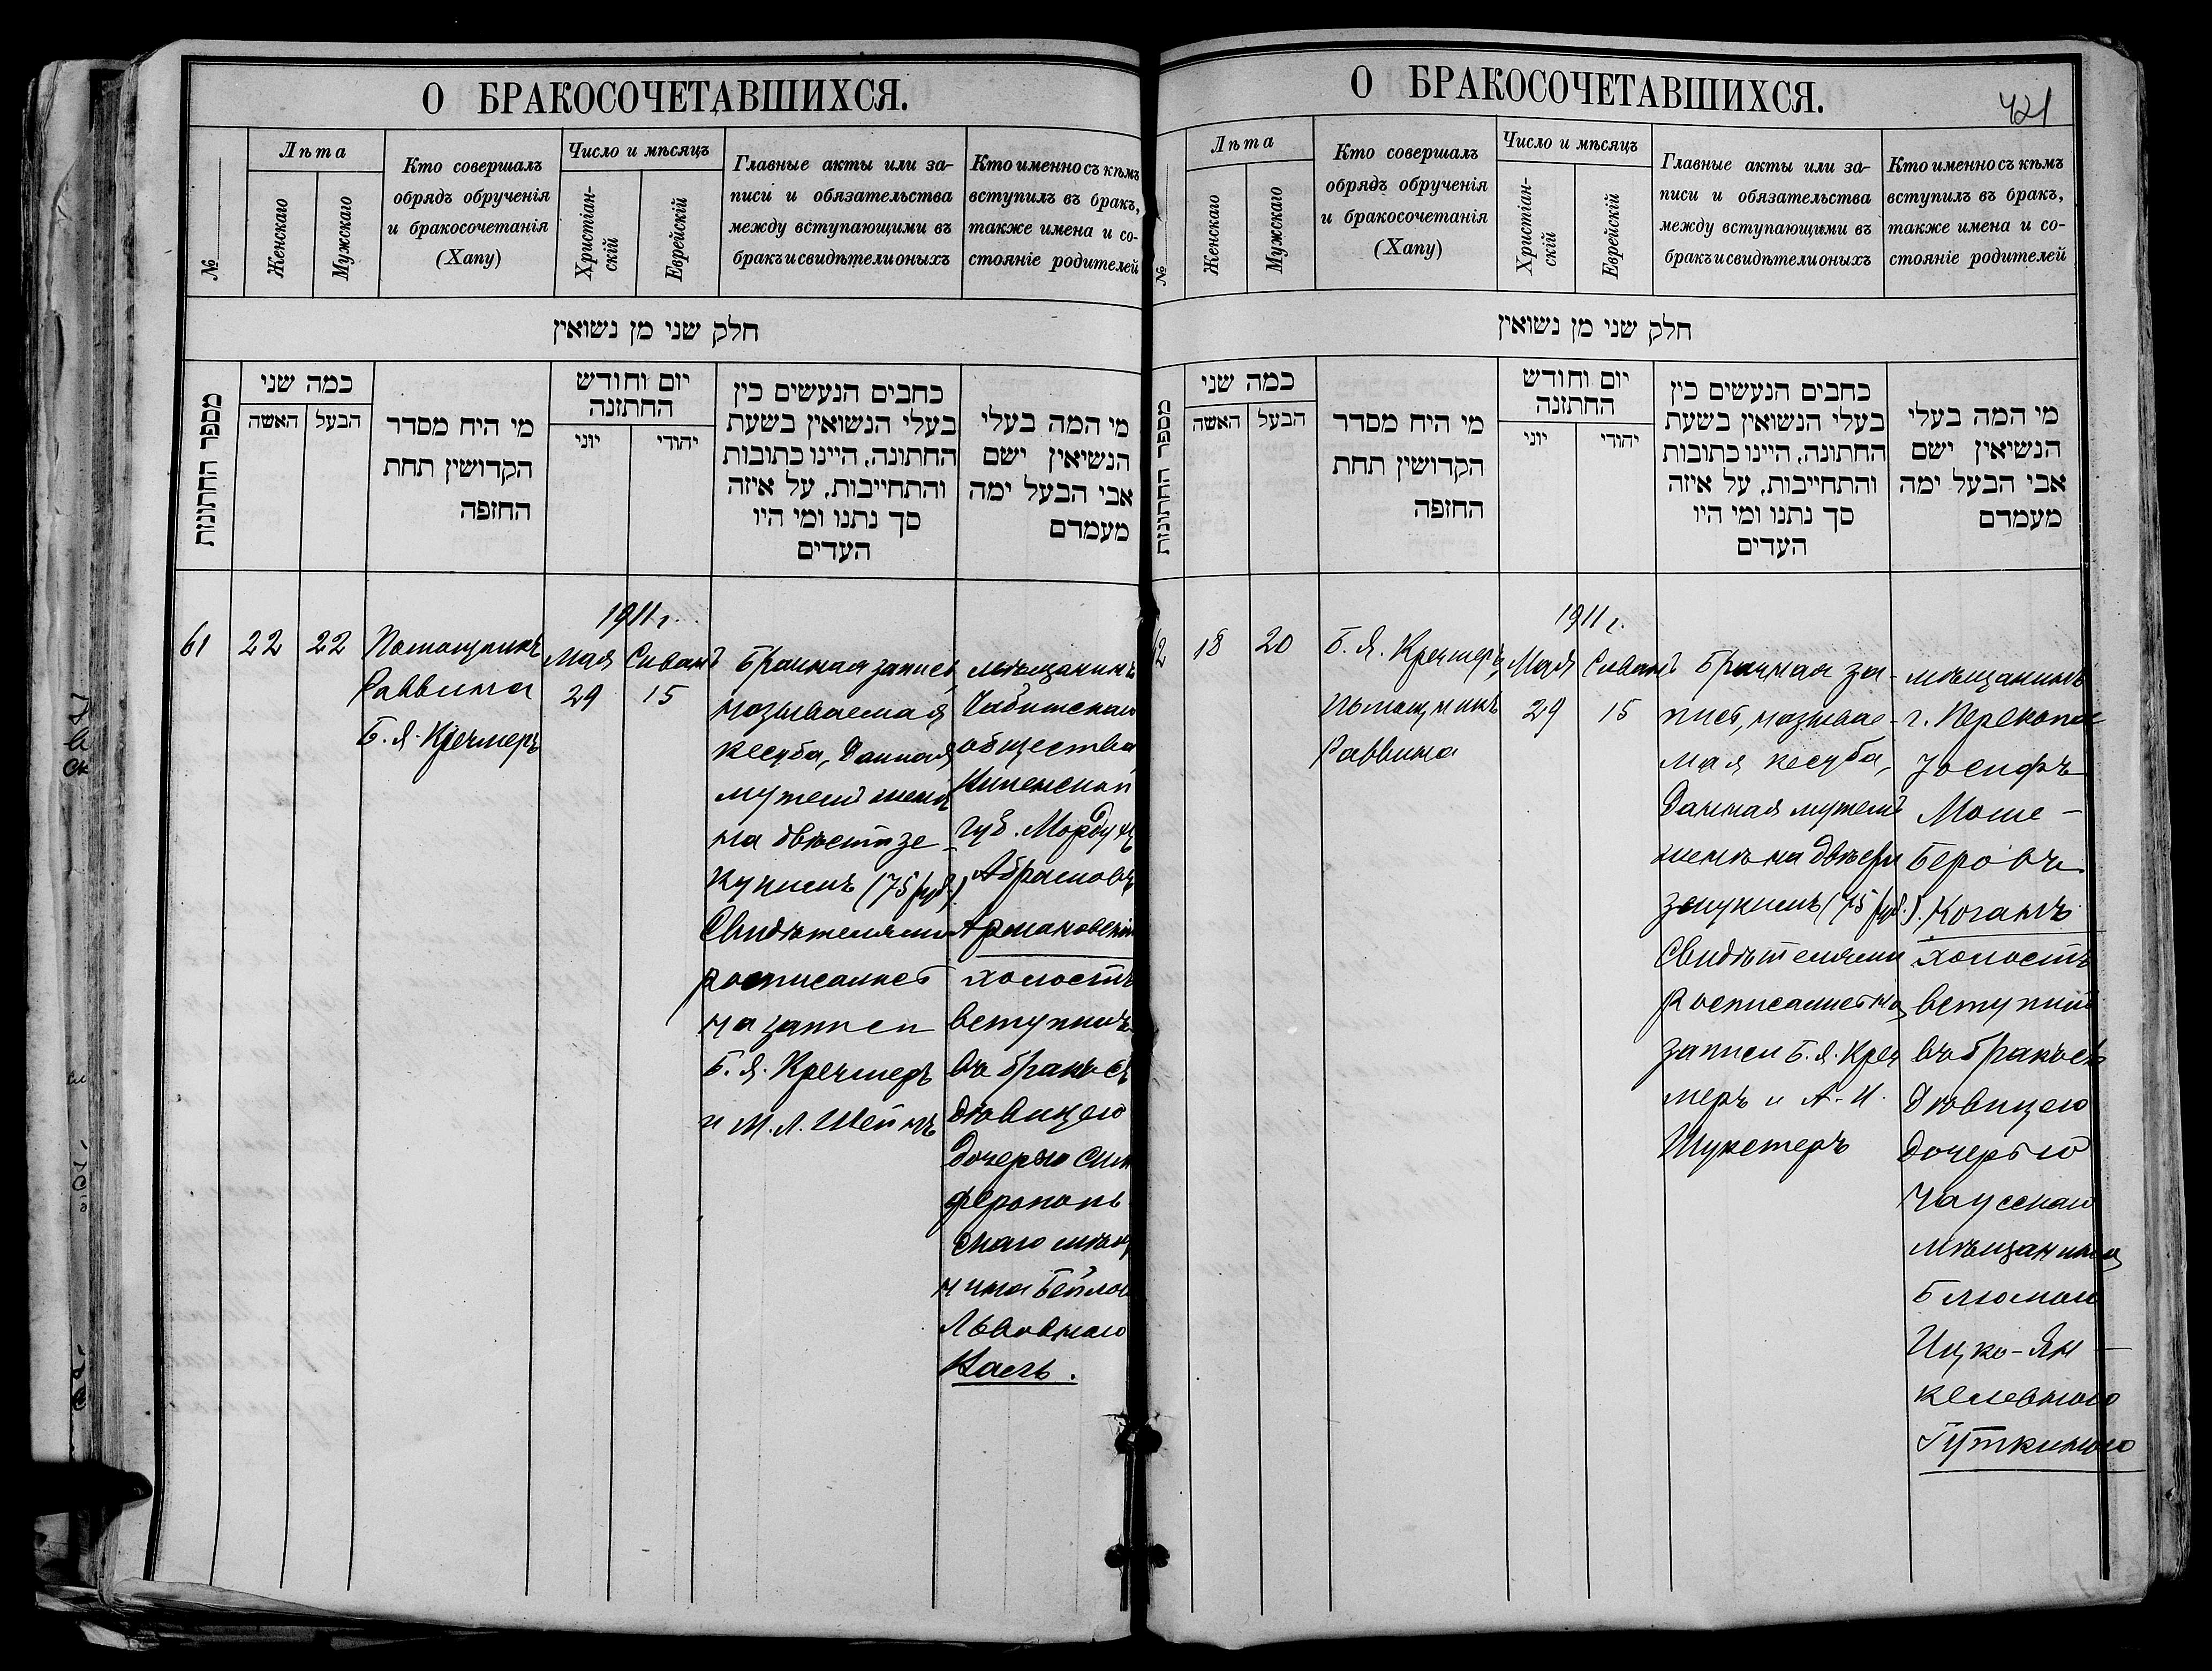 О БРАКОСОЧЕТАВШИХСЯ.
№
Лѣта
Женскаго
Мужскаго
Кто совершалъ
обрядъ обрученія
и бракосочетанія
(Хапу)
Число и мѣсяцъ
Христіан-
скій
Еврейскій
Главные акты или за-
писи и обязательства
между вступающими въ
бракъ и свидѣтели оныхъ
Кто именно съ кѣмъ
вступилъ въ бракъ,
также имена и со-
стояніе родителей
חלק שני מן נשואין
מספר החתונות
כמה שני
האשה
הבעל
מי היח מסדר
הקדושין תחת
החזפה
יום וחודש
החתזנה
יוני
יהודי
כחבים הנעשים כין
בעלי הנשואין בשעת
החתונה, היינו כתובות
והתחייבות, על איזה
סך נתנו ומי היו
העדים
מי המה בעלי
הנשיאין ישם
אבי הבעל ימה
מעמדם
61
22
22
Помощникъ
Раввина
Б. Я. Кречмеръ
1911 г.
Мая
29
Сиванъ
15
Брачная запись
называемая
кесуба, данная
мужемъ женѣ
на двѣсти зе-
кукимъ (75 руб.)
Свидѣтелями
росписались
на записи
Б. Я. Кречмеръ
и М. Л. Шейнъ
мѣщанинъ
общества
губ. Мордух
Абрамовъ
Армаковскій
холостъ
вступилъ
въ бракъ съ
дѣвицею
дочерью Сим
ферополь
скаго мѣща
нина Бейлою
Львовною
Кацъ.
О БРАКОСОЧЕТАВШИХСЯ.
421
№
Лѣта
Женскаго
Мужскаго
Кто совершалъ
обрядъ обрученія
и бракосочетанія
(Хапу)
Число и мѣсяцъ
Христіан-
скій
Еврейскій
Главные акты или за-
писи и обязательства
между вступающими въ
бракъ и свидѣтели оныхъ
Кто именно съ кѣмъ
вступилъ въ бракъ,
также имена и со-
стояніе родителей
חלק שני מן נשואין
מספר החתונות
כמה שני
האשה
הבעל
מי היח מסדר
הקדושין תחת
החזפה
יום וחודש
החתזנה
יוני
יהודי
כחבים הנעשים כין
בעלי הנשואין בשעת
החתונה, היינו כתובות
והתחייבות, על איזה
סך נתנו ומי היו
העדים
מי המה בעלי
הנשיאין ישם
אבי הבעל ימה
מעמדם
62
18
20
Б. Я. Кречмеръ,
помощникъ
Раввина
1911 г.
Мая
29
Сиванъ
15
Брачная за-
пись, называе-
мая кесуба,
данная мужемъ
женѣ на двѣсти
зекукимъ (75 руб.).
Свидѣтелями
росписались на
записи Б. Я. Креч
меръ и А. И.
Шукстеръ
мѣщанинъ
г. Перекопа
Іосифъ
Моше-
Беровъ
Коганъ
холостъ
вступилъ
въ бракъ съ
дѣвицею
дочерью
Чаусскаго
мѣщанина
Блюмою
Ицко-Ян-
келевною
Гуткиною